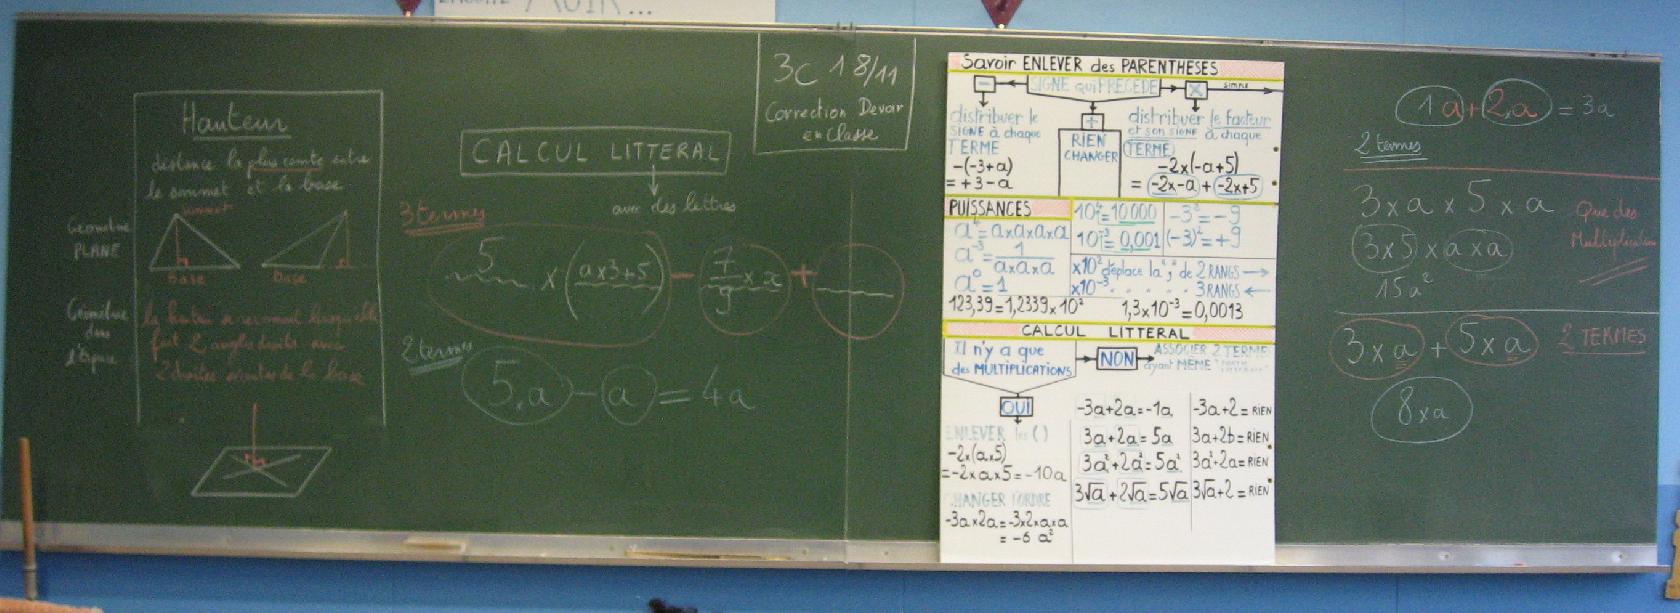 Hauteur
distance la plus courte entre
le sommet et la base
sommet
Géométrie
PLANE
Base
Base
Géométrie
dans
l'Espace
la hauteur se reconnait lorsqu'elle
fait 2 angles droits avec
2 droites de la base
3C 18/11
Correction Devoir
en Classe
CALCUL LITTERAL
avec des lettres
3 termes
5 × (a×3+5) − 7/9 × x +
2 termes
5×a − a = 4a
Savoir ENLEVER des PARENTHESES
− SIGNE qui PRECEDE × simple
distribuer le
SIGNE à chaque
TERME
−(−3+a)
= +3−a
+
RIEN
CHANGER
distribuer le facteur
et son SIGNE à chaque
TERME
−2×(−a+5)
= −2×−a + −2×5
PUISSANCES
a⁴=a×a×a×a
a⁻³= 1/a×a×a
a⁰=1
10⁴=10 000
10⁻³=0,001
−3²=−9
(−3)²=+9
×10² déplace la "," de 2 RANGS →
×10⁻³ . . . . . 3 RANGS ←
123,39=1,2339×10² 1,3×10⁻³=0,0013
CALCUL LITTERAL
Il n'y a que
des MULTIPLICATIONS
NON
ASSOCIER 2 TERMES
ayant MÊME
OUI
ENLEVER les ( )
−2×(a×5)
=−2×a×5=−10a
CHANGER l'ORDRE
−3a×2a=−3×2×a×a
= −6 a²
−3a+2a=−1a
3a+2a=5a
3a²+2a²=5a²
3√a+2√a=5√a
−3a+2=RIEN
3a+2b=RIEN
3a²+2a=RIEN
3√a+2=RIEN
1a+2×a = 3a
2 termes
3×a×5×a
3×5×a×a
15a²
Que des
Multiplications
3×a + 5×a
2 TERMES
8×a